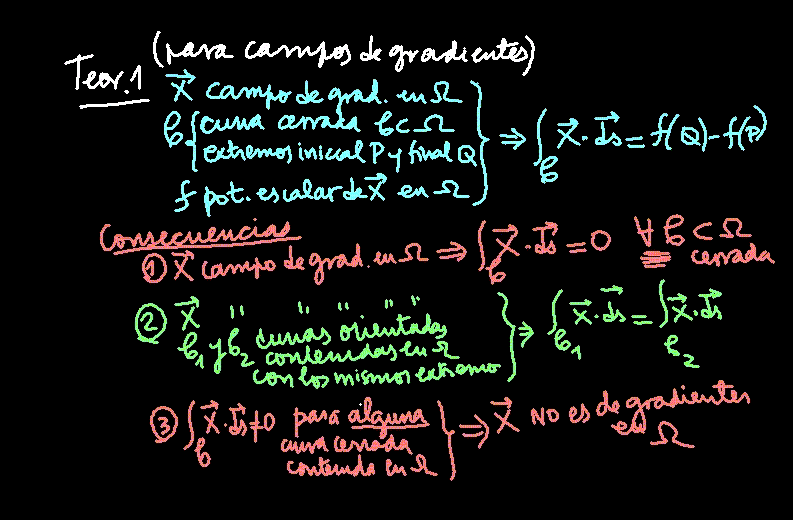 Teor. 1 (para campos de gradientes)
X⃗ campo de grad. en Ω
C { curva cerrada C ⊂ Ω
extremos inicial P y final Q
f pot. escalar de X⃗ en Ω
} ⇒ ∫_C X⃗ · ds⃗ = f(Q) - f(P)
Consecuencias
① X⃗ campo de grad. en Ω ⇒ ∫_C X⃗ · ds⃗ = 0 ∀ C ⊂ Ω
cerrada
② X⃗ " " " " "
C₁ y C₂ curvas orientadas
contenidas en Ω
con los mismos extremo
} ⇒ ∫_C₁ X⃗ · ds⃗ = ∫_C₂ X⃗ · ds⃗
③ ∫_C X⃗ · ds⃗ ≠ 0 para alguna
curva cerrada
contenida en Ω
} ⇒ X⃗ NO es de gradientes
en Ω